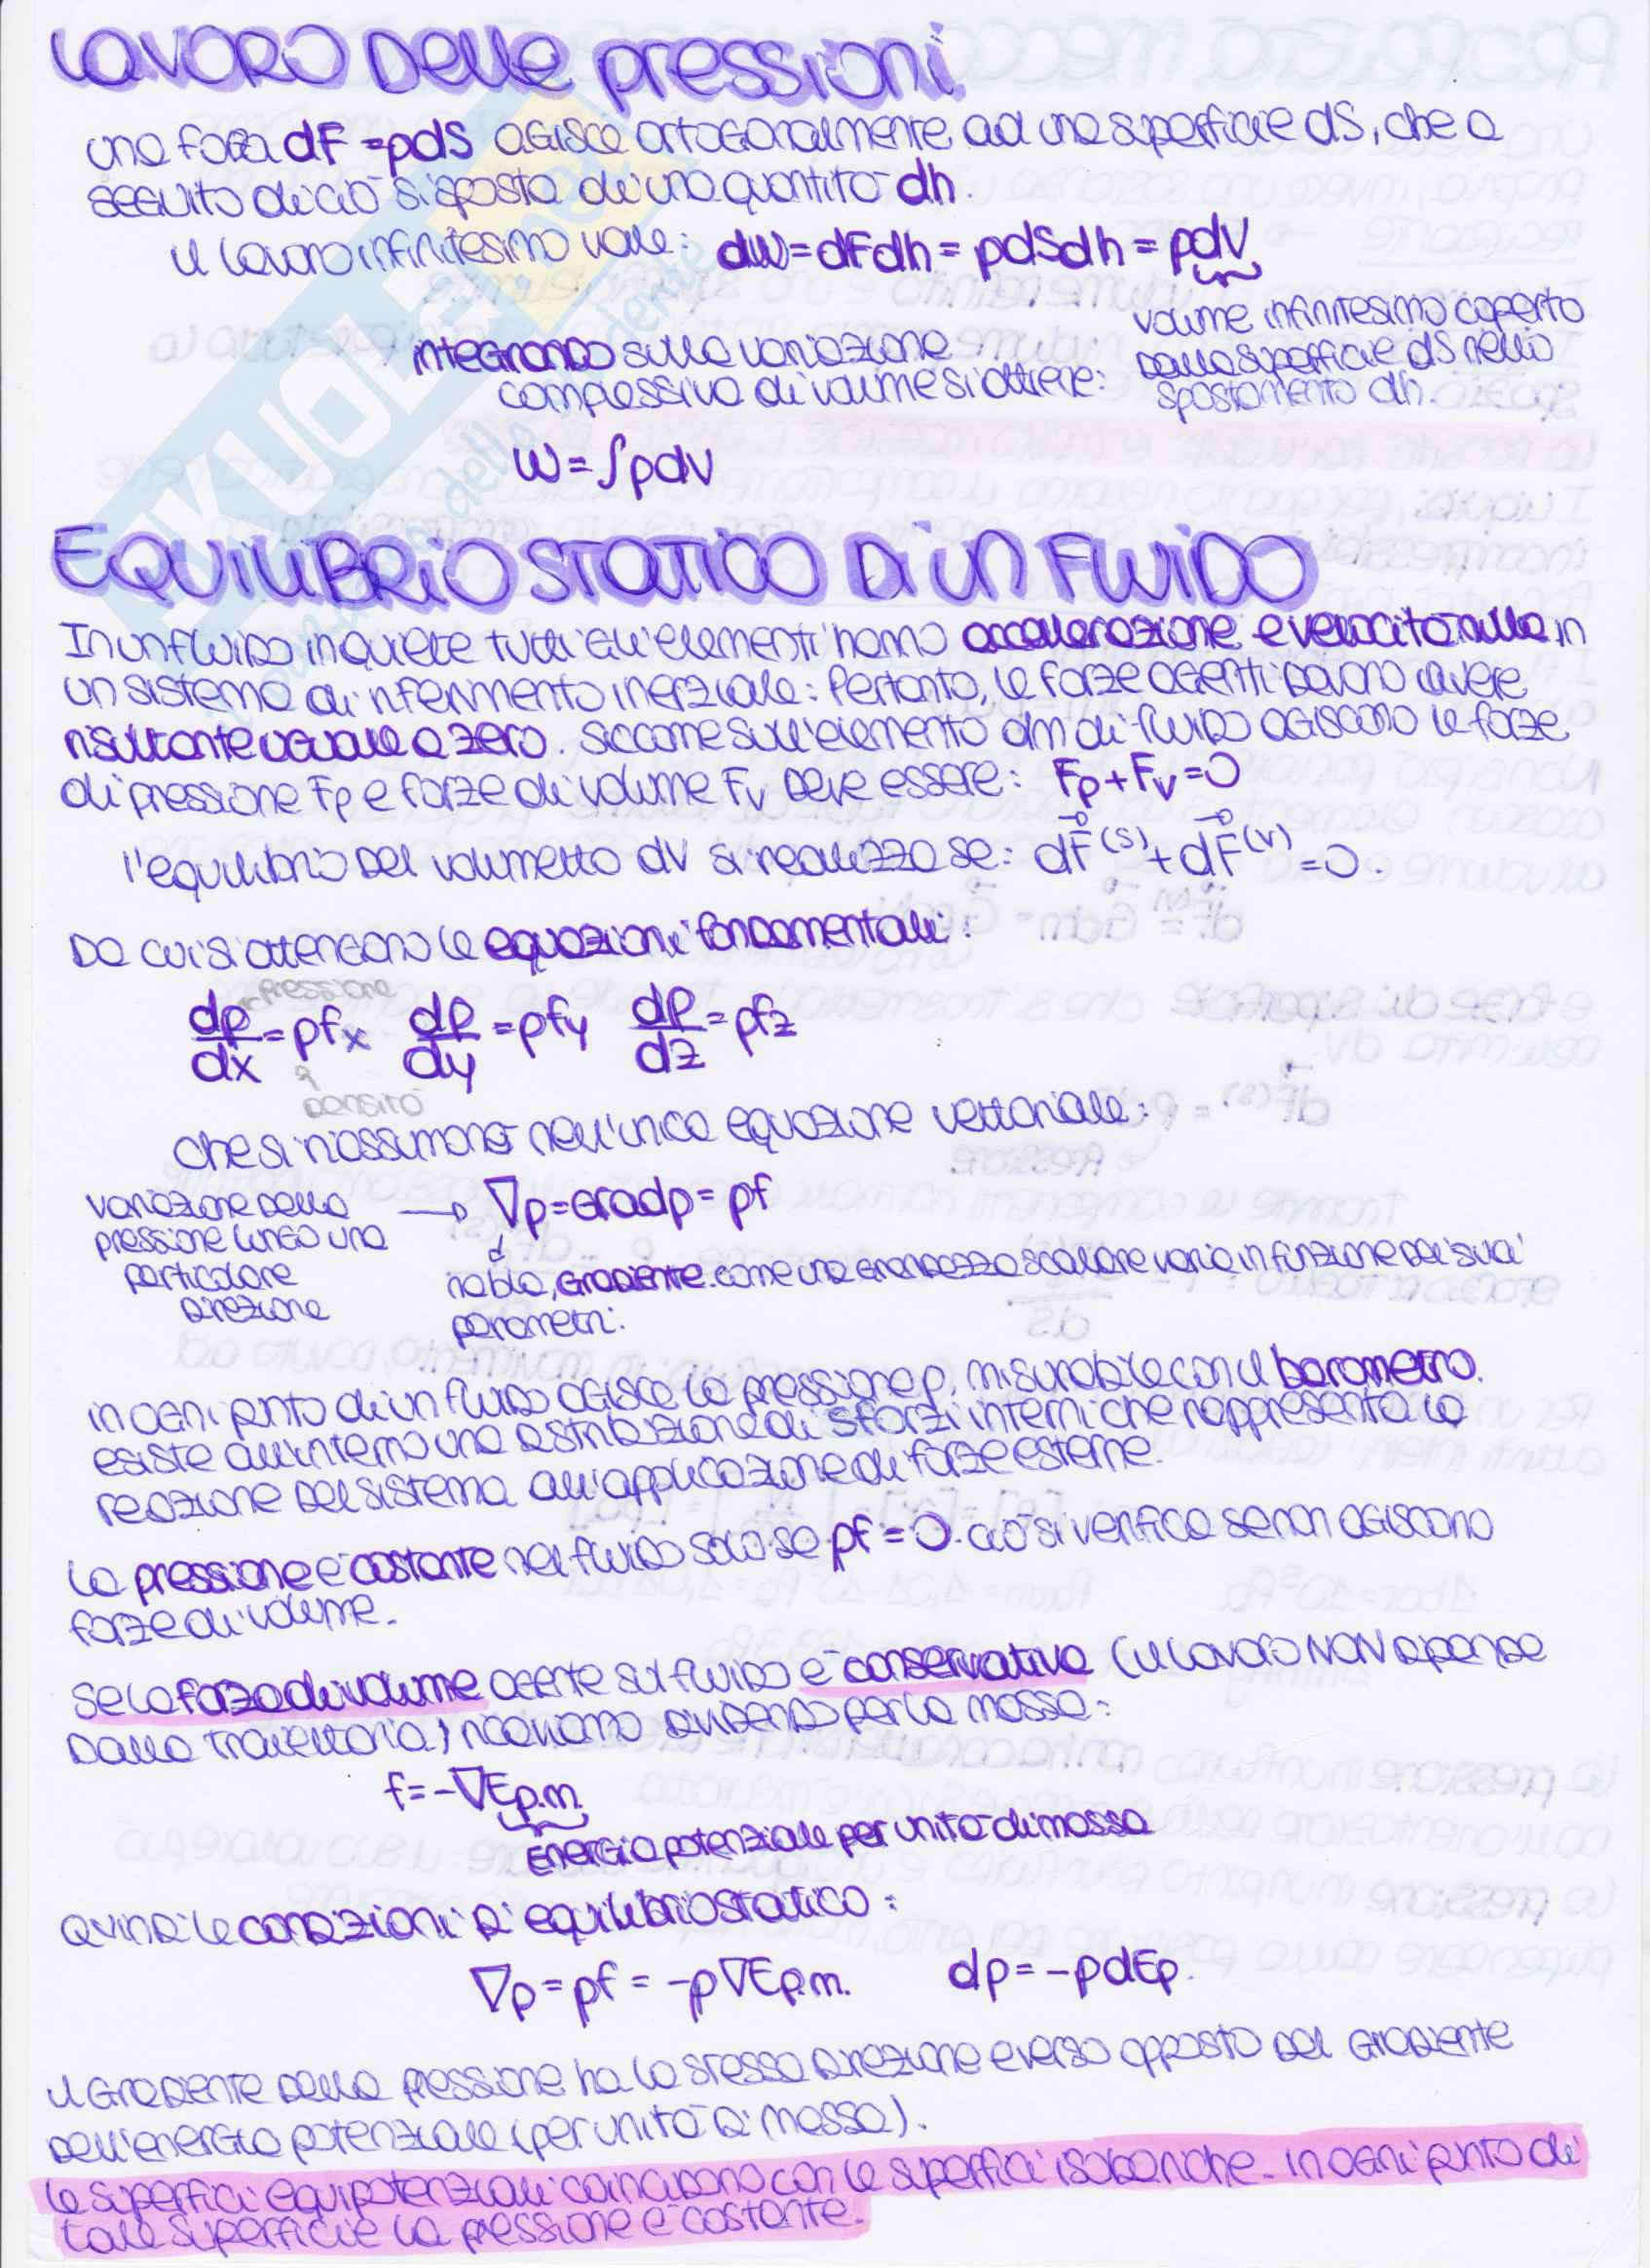 LAVORO DELLE PRESSIONI
una forza dF = pdS agisce ortogonalmente ad una superficie dS, che a
seguito di ciò si sposta di una quantità dh.
il lavoro infinitesimo vale: dW = dFdh = pdSdh = pdV
volume infinitesimo coperto
dalla superficie dS nello
spostamento dh.
integrando sulla variazione
complessiva di volume si ottiene:
W = ∫pdV
EQUILIBRIO STATICO DI UN FLUIDO
In un fluido in quiete tutti gli elementi hanno accellerazione e velocità nulla in
un sistema di riferimento inerziale: Pertanto, le forze agenti devono avere
risultante uguale a zero. Siccome sull'elemento dm di fluido agiscono le forze
di pressione Fp e forze di volume Fv deve essere: Fp + Fv = 0
l'equilibrio del volumetto dV si realizza se: dF⃗(S) + dF⃗(V) = 0.
Da cui si ottengono le equazioni fondamentali:
pressione
dp/dx = ρfx dp/dy = ρfy dp/dz = ρfz
densità
che si riassumono nell'unica equazione vettoriale:
variazione della
pressione lungo una
particolare
direzione
→ ∇p = gradp = ρf
nabla, gradiente. come una grandezza scalare varia in funzione dei suoi
parametri.
in ogni punto di un fluido agisce la pressione p, misurabile con il barometro.
esiste all'interno una distribuzione di sforzi interni che rappresenta la
reazione del sistema all'applicazione di forze esterne.
la pressione è costante nel fluido solo se ρf = 0. ciò si verifica se non agiscono
forze di volume.
se la forza di volume agente sul fluido è conservativa (il lavoro NON dipende
dalla traiettoria) ricaviamo dividendo per la massa:
f = -∇Ep.m.
Energia potenziale per unità di massa
Quindi le condizioni di equilibrio statico:
∇p = ρf = -ρ∇Ep.m. dp = -ρdEp.
il gradiente della pressione ha la stessa direzione e verso opposto del gradiente
dell'energia potenziale (per unità di massa).
le superfici equipotenziali coincidono con le superfici isobariche. in ogni punto di
tale superficie la pressione è costante.